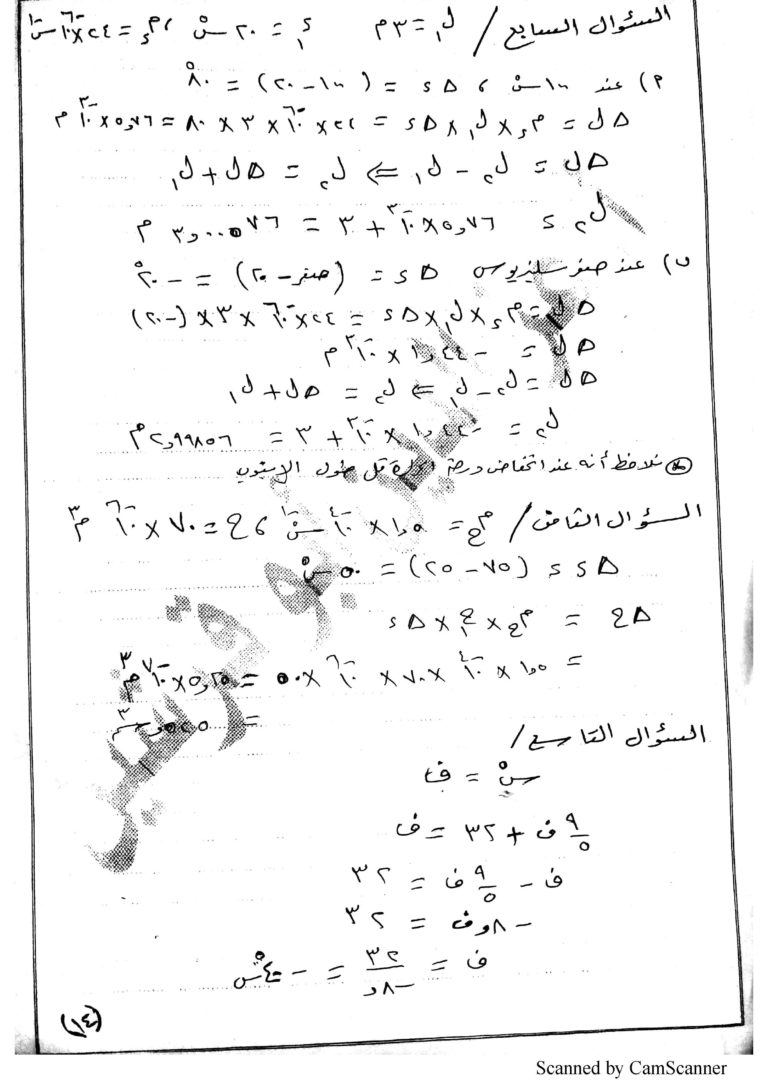 السؤال السابع / ل١ = ٣م د١ = ٢٠ سْ ، م د = ٢٤×١٠-٦ سْ-١
١) عند ١٠٠ سْ ، Δد = (١٠٠ - ٢٠) = ٨٠ْ
Δل = م د × ل١ × Δد = ٢٤×١٠-٦ × ٣ × ٨٠ = ٥,٧٦×١٠-٣ م
Δل = ل٢ - ل١ ⇐ ل٢ = Δل + ل١
ل٢ = ٥,٧٦×١٠-٣ + ٣ = ٣,٠٠٥٧٦ م
ب) عند صفر سلزيوس Δد = (صفر - ٢٠) = -٢٠ْ
Δل = م د × ل١ × Δد = ٢٤×١٠-٦ × ٣ × (-٢٠)
Δل = -١,٤٤ × ١٠-٣ م
Δل = ل٢ - ل١ ⇐ ل٢ = Δل + ل١
ل٢ = -١,٤٤ × ١٠-٣ + ٣ = ٢,٩٩٨٥٦ م
نلاحظ أنه عند انخفاض درجة الحرارة قل طول الأنبوب
السؤال الثامن / م ح = ١,٥ × ١٠-٤ سْ-١ ، ح = ٧٠ × ١٠-٦ م٣
Δد = (٧٥ - ٢٥) = ٥٠ سْ
Δح = م ح × ح١ × Δد
= ١,٥ × ١٠-٤ × ٧٠ × ١٠-٦ × ٥٠ = ٥,٢٥×١٠-٧ م٣
= ٥٢٥,٠ سم٣
السؤال التاسع /
سْ = ف
٩/٥ ف + ٣٢ = ف
ف - ٩/٥ ف = ٣٢
-٨,ف = ٣٢
ف = ٣٢/-٨, = -٤٠ْس
(١٤)
Scanned by CamScanner